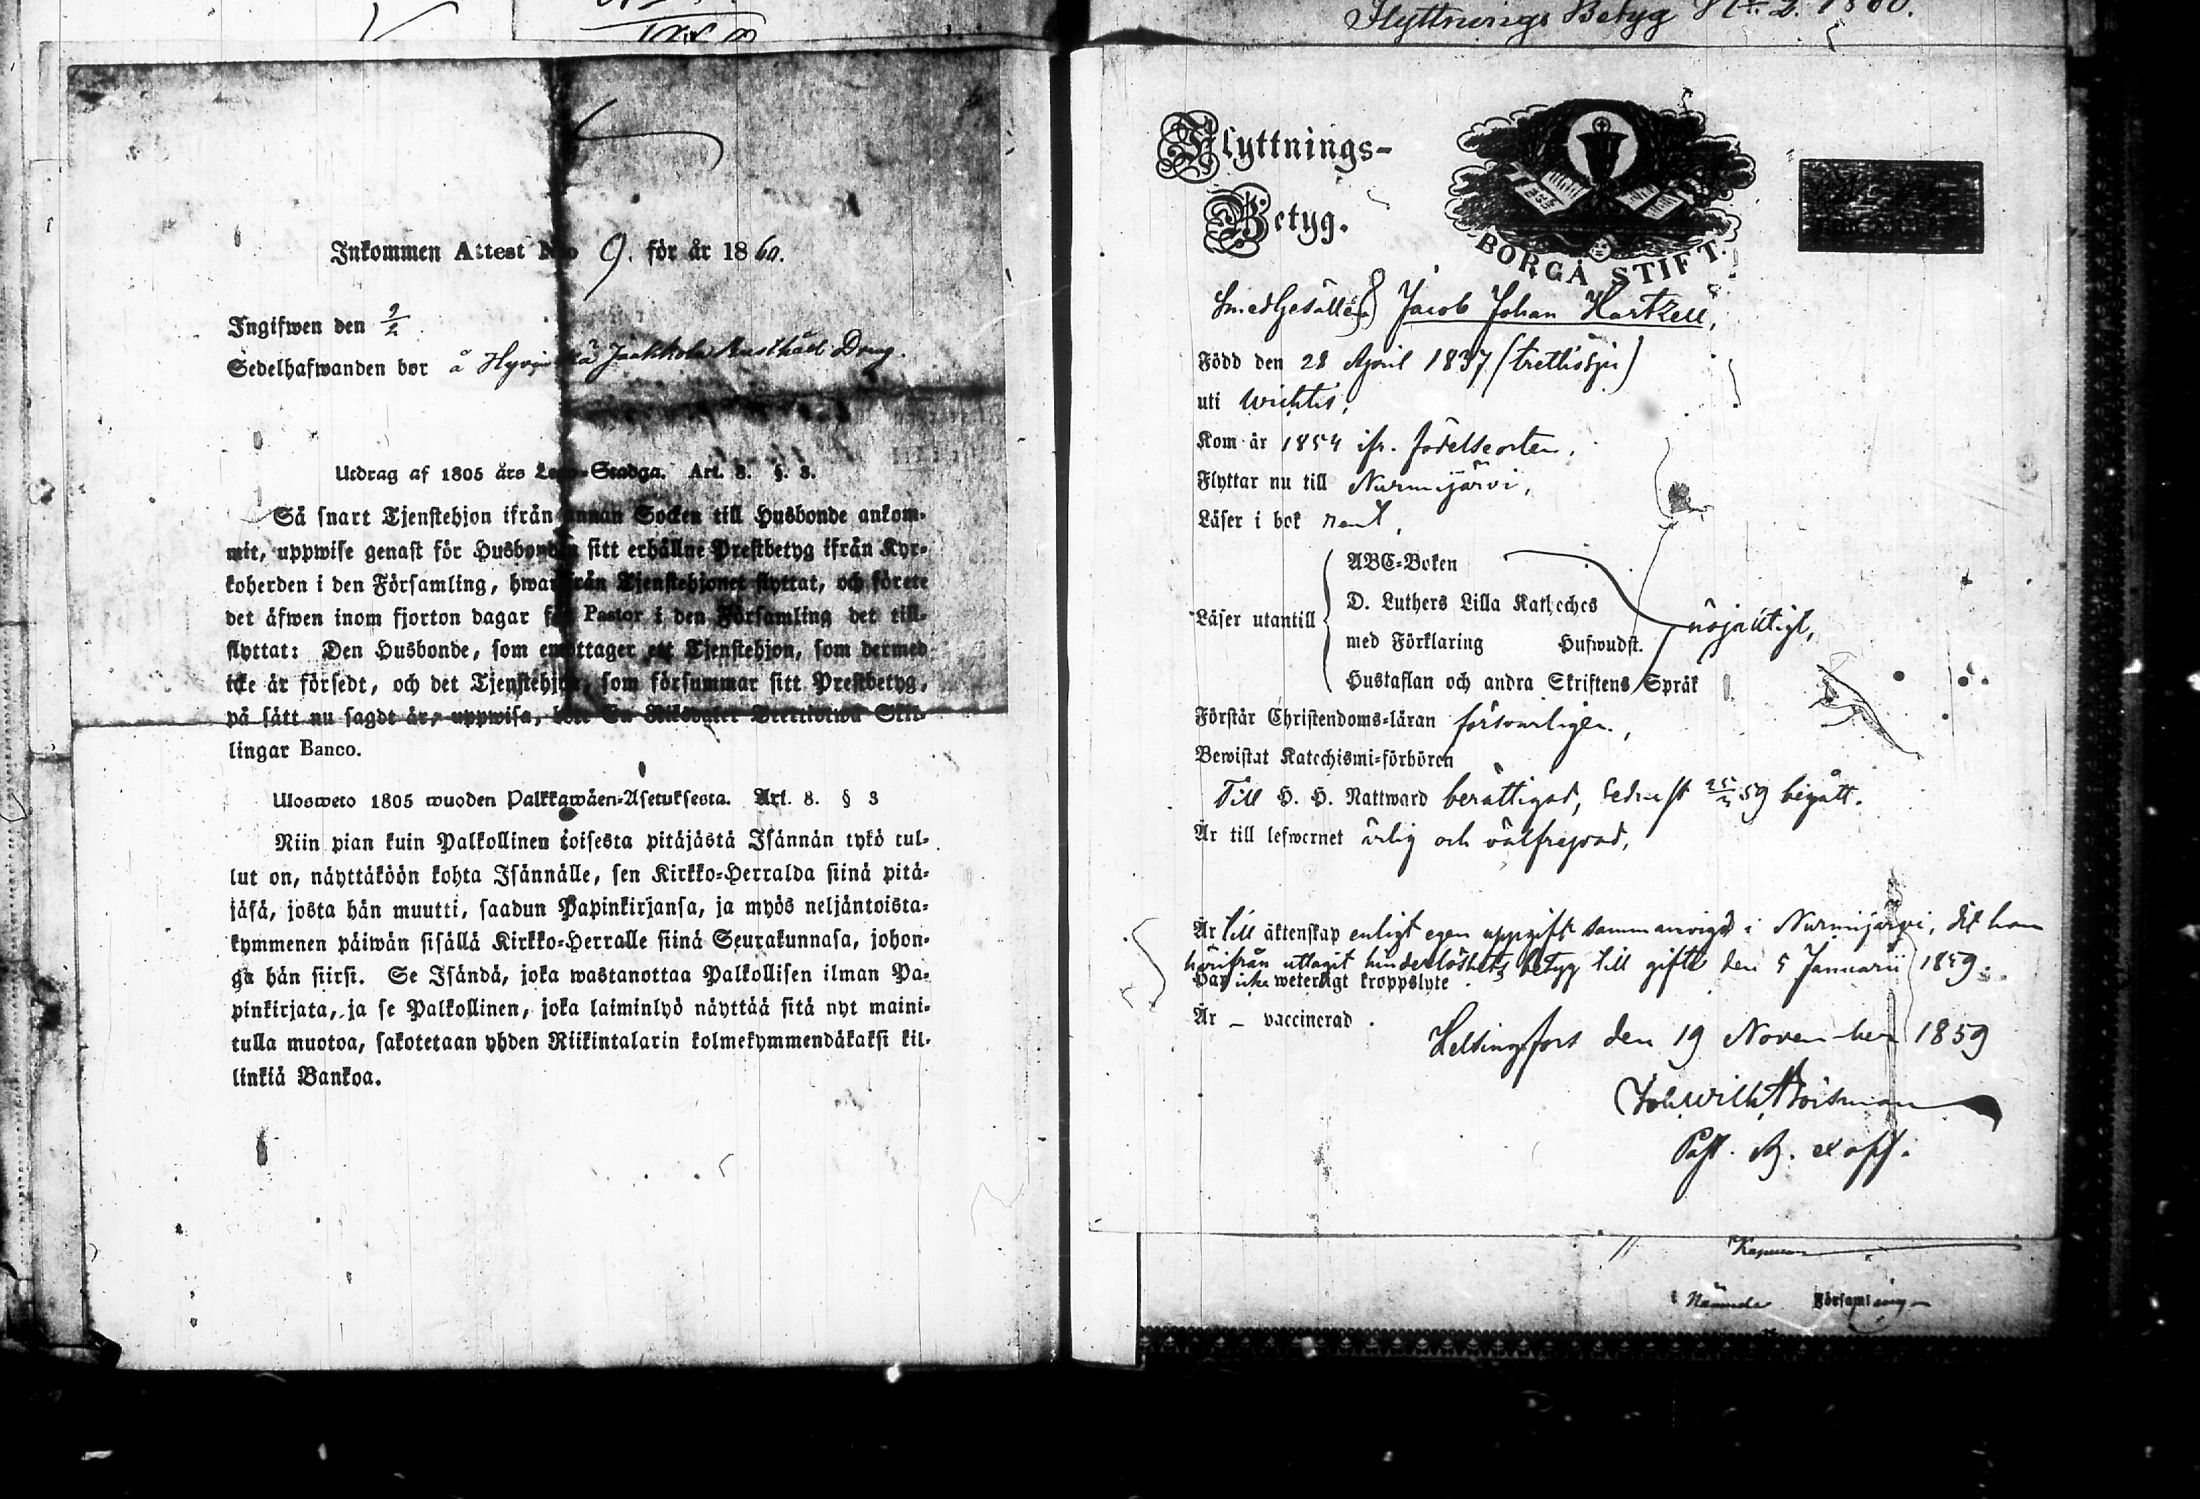 Inkommen Attest N:o 9. för år 1860.
Ingifwen den 9/2
Sedelhafwanden bor å Hyvinkä Jaakkola Rusthåll Dräng.
Utdrag af 1805 års Lego-Stadga. Art. 8. §. 3.
Så snart Tjenstehjon ifrån annan Socken till Husbonde ankom-
mit, uppwise genast för Husbonden sitt erhållne Prestbetyg ifrån Kyr-
koherden i den Församling, hwarifrån Tjenstehjonet flyttat, och förete
det äfwen inom fjorton dagar för Pastor i den Församling det till-
flyttat: Den Husbonde, som emottager ett Tjenstehjon, som dermed
icke är försedt, och det Tjenstehjon, som försummar sitt Prestbetyg,
på sätt nu sagdt är, uppwisa, böte En Riksdaler Trettiotwå Skil-
lingar Banco.
Ulosweto 1805 wuoden Palkkawäen-Asetuksesta. Art. 8. § 3
Niin pian kuin Palkollinen toisesta pitäjästä Isännän tykö tul-
lut on, näyttäköön kohta Isännälle, sen Kirkko-Herralda siinä pitä-
jäsä, josta hän muutti, saadun Papinkirjansa, ja myös neljäntoista-
kymmenen päiwän sisällä Kirkko-Herralle siinä Seurakunnasa, johon-
ga hän siirsi. Se Isändä, joka wastanottaa Palkollisen ilman Pa-
pinkirjata, ja se Palkollinen, joka laiminlyö näyttää sitä nyt maini-
tulla muotoa, sakotetaan yhden Riikintalarin kolmekymmendäkaksi kil-
linkiä Bankoa.
Flyttnings Betyg No 2. 1860.
Flyttnings-
Betyg.
BORGÅ STIFT.
Smedgesällen Jacob Johan Hartzell,
Född den 28 April 1837 (trettiosju)
uti Wichtis,
Kom år 1854 ifr. födelseorten.
Flyttar nu till Nurmijärvi,
Läser i bok rent,
Läser utantill
ABC-Boken
D. Luthers Lilla Katheches
med Förklaring Hufwudst.
Hustaflan och andra Skriftens Språk
nöjaktigt,
Förstår Christendoms-läran försvarligen,
Bewistat Katechismi-förhören
Till H. H. Nattward berättigad, sednast 59 begått.
Är till lefwernet ärlig och välfrejdad,
Är till äktenskap enligt egen uppgift sammanvigd i Nurmijärvi, dit han
härifrån uttagit hinderlöshets betyg till gifte den 5 Januarii 1859.
Har icke weterligt kroppslyte
Är – vaccinerad.
Helsingfors den 19 November 1859
Joh. Wilh. Roisman
Past. Adj. ex off.
i Nämnde Församling